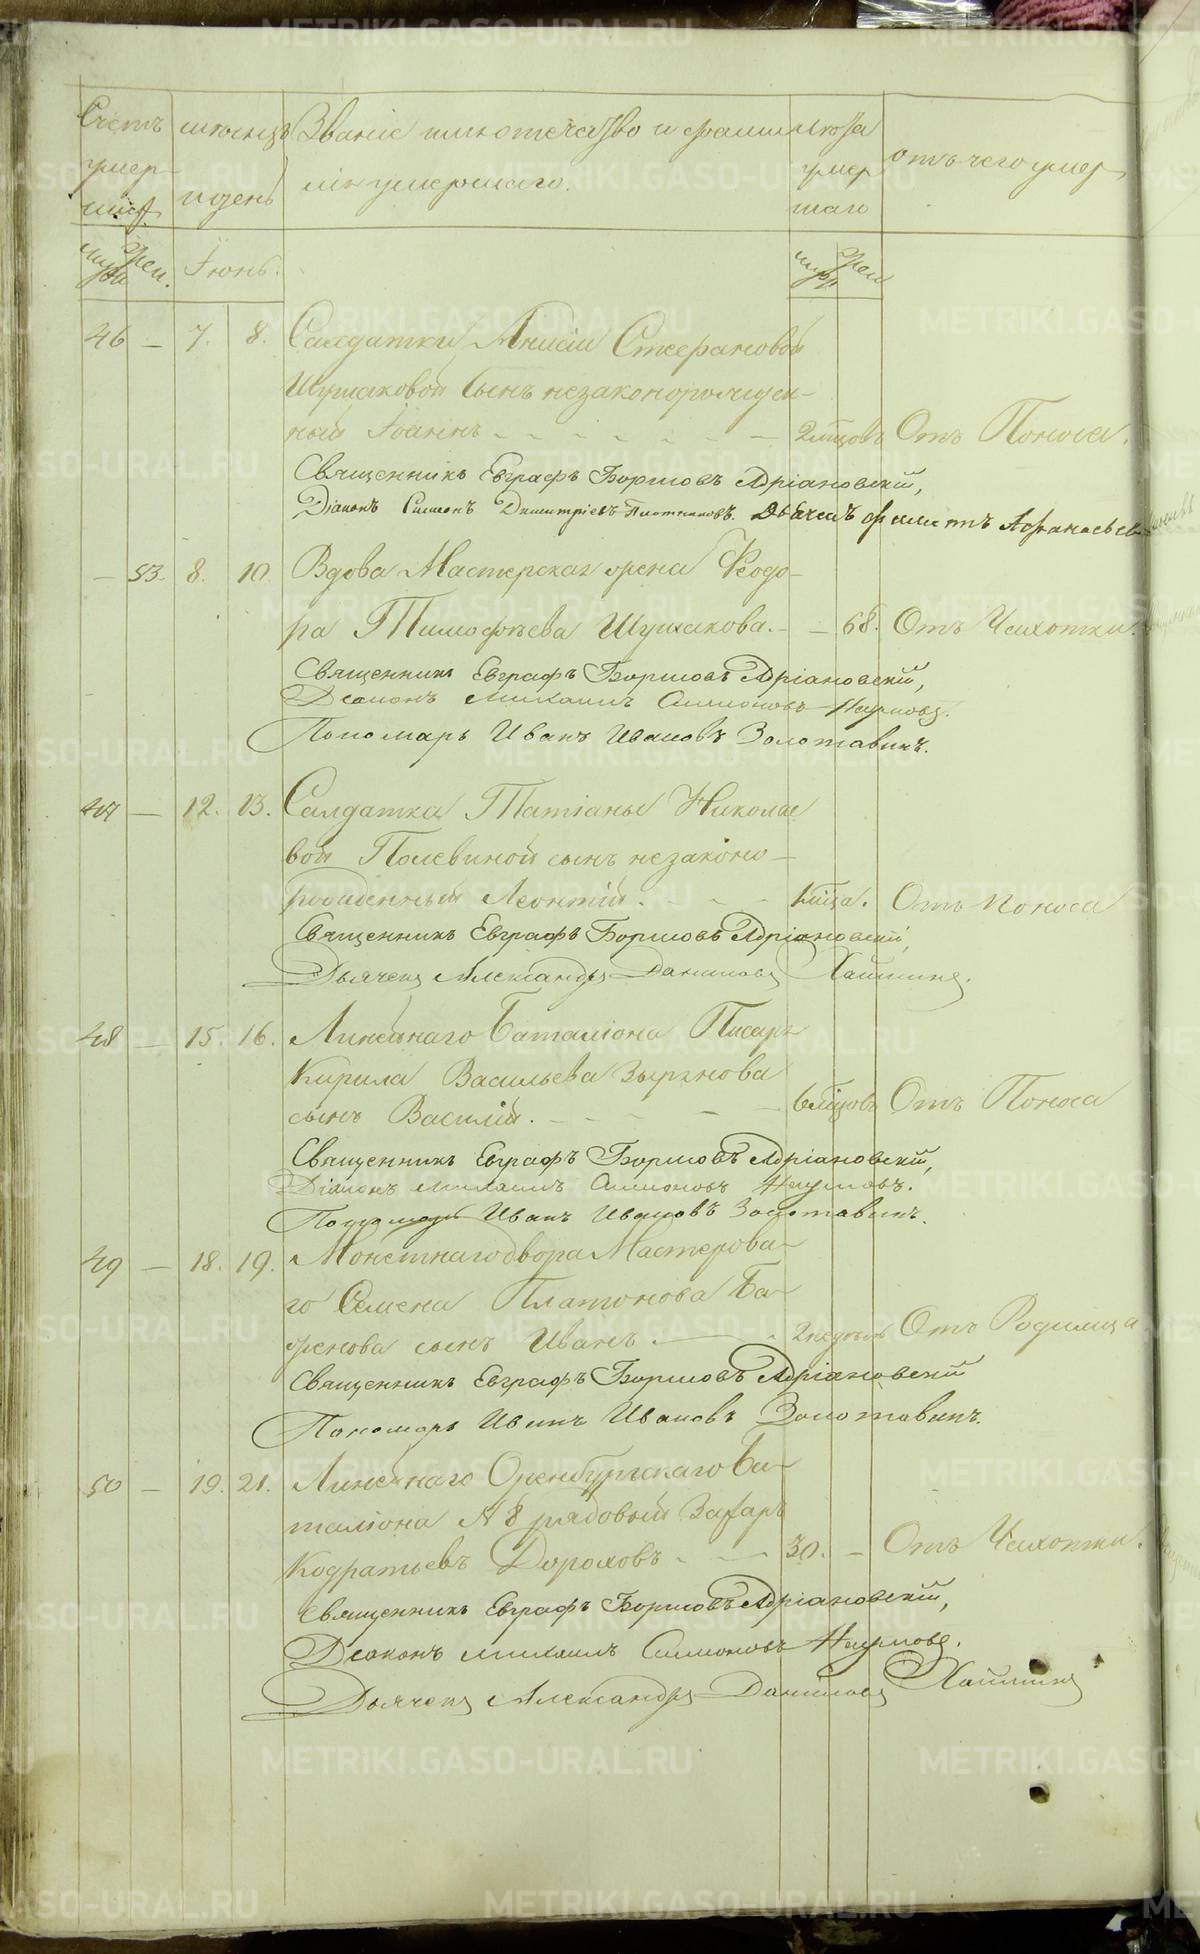 Счетъ умер шихъ
месяцъ и день
Званіе имя отечество и фамилія умершаго.
Лета умер шаго
отъ чего умер
муж. Жен. Іюнь. муж. Жен.
46 — 7. 8. Салдатки Анисіи Стефановой
Шушаковой сынъ незаконорожден-
ный Іоаннъ - - - - - 2 мцовъ Отъ Поноса.
Священникъ Евграфъ Борисовъ Адріановскій,
Діаконъ Симеонъ Димитріевъ Плотниковъ. Дьячекъ Феликтъ Афанасьевъ
— 53. 8. 10. Вдова Мастерская жена Феодо-
ра Тимофѣева Шушакова. - — 68. Отъ Чахотки.
Священникъ Евграфъ Борисовъ Адріановскій,
Деаконъ Михаилъ Симоновъ Наумовъ.
Пономарь Иванъ Ивановъ Золотавинъ.
47 — 12. 13. Салдатки Татіаны Николае
вой Полевиной сынъ незаконо-
рожденный Леонтій. - - - 1 мца. Отъ Поноса
Священникъ Евграфъ Борисовъ Адріановскій,
Дьячекъ Александръ Даниловъ Хамкинъ.
48 — 15. 16. Линейнаго Баталіона Писаря
Кирила Васильева Зырянова
сынъ Василій. - - - 6 мцовъ Отъ Поноса
Священникъ Евграфъ Борисовъ Адріановскій,
Діаконъ Михаилъ Симоновъ Наумовъ.
Пономарь Иванъ Ивановъ Золотавинъ.
49 — 18. 19. Монетнаго двора Мастерова-
го Семена Платонова Ба-
женова сынъ Иванъ. — 2 недѣль Отъ Родимца
Священникъ Евграфъ Борисовъ Адріановскій
Пономарь Иванъ Ивановъ Золотавинъ.
50 — 19. 21. Линейнаго Оренбургскаго Ба-
таліона № 8 рядовый Захаръ
Кодратьевъ Дороховъ - - 30. — Отъ Чахотки.
Священникъ Евграфъ Борисовъ Адріановскій,
Деаконъ Михаилъ Симоновъ Наумовъ.
Дьячекъ Александръ Даниловъ Хамкинъ
METRIKI.GASO-URAL.RU